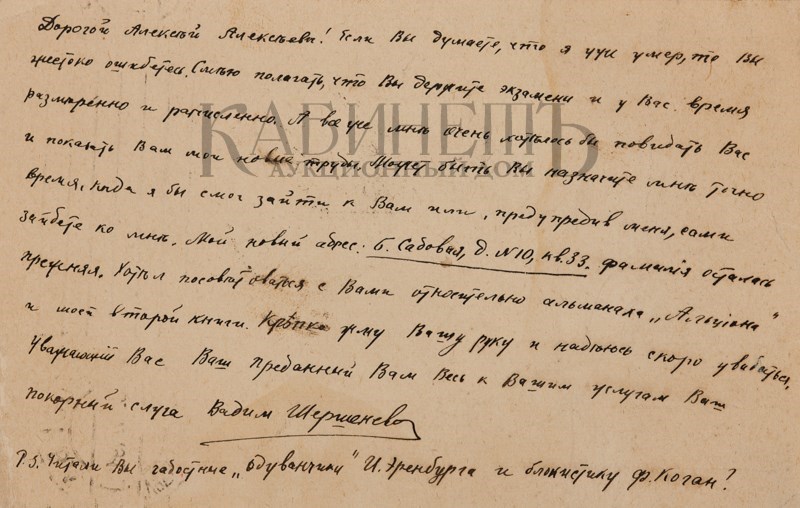 Дорогой Алексѣй Алексѣевичъ! Если Вы думаете, что я уже умеръ, то Вы
жестоко ошибетесь. Смѣю полагать, что Вы держите экзамены и у Васъ время
размѣренно и расчисленно. А все же мнѣ очень хотѣлось бы повидать Васъ
и показать Вамъ мои новые труды. Можетъ быть Вы назначите мнѣ точно
время, когда я бы смогъ зайти к Вамъ или, предупредивъ меня, сами
зайдете ко мнѣ. Мой новый адрес: Б. Садовая, д. N10, кв. 33. Фамилія осталась
прежняя. Хотѣл посовѣтоваться с Вами относительно альманаха „Альціона"
и моей второй книги. Крѣпко жму Вашу руку и надѣюсь скоро увидаться.
Уважающій Вас Ваш преданный Вам весь к Вашим услугам Ваш
покорный слуга Вадим Шершеневич
P.S. Читали Вы гадостные „Одуванчики" И. Эренбурга и блокистику Ф. Коган?
КАБИНЕТЪ
АУКЦИОННЫЙ ДОМ